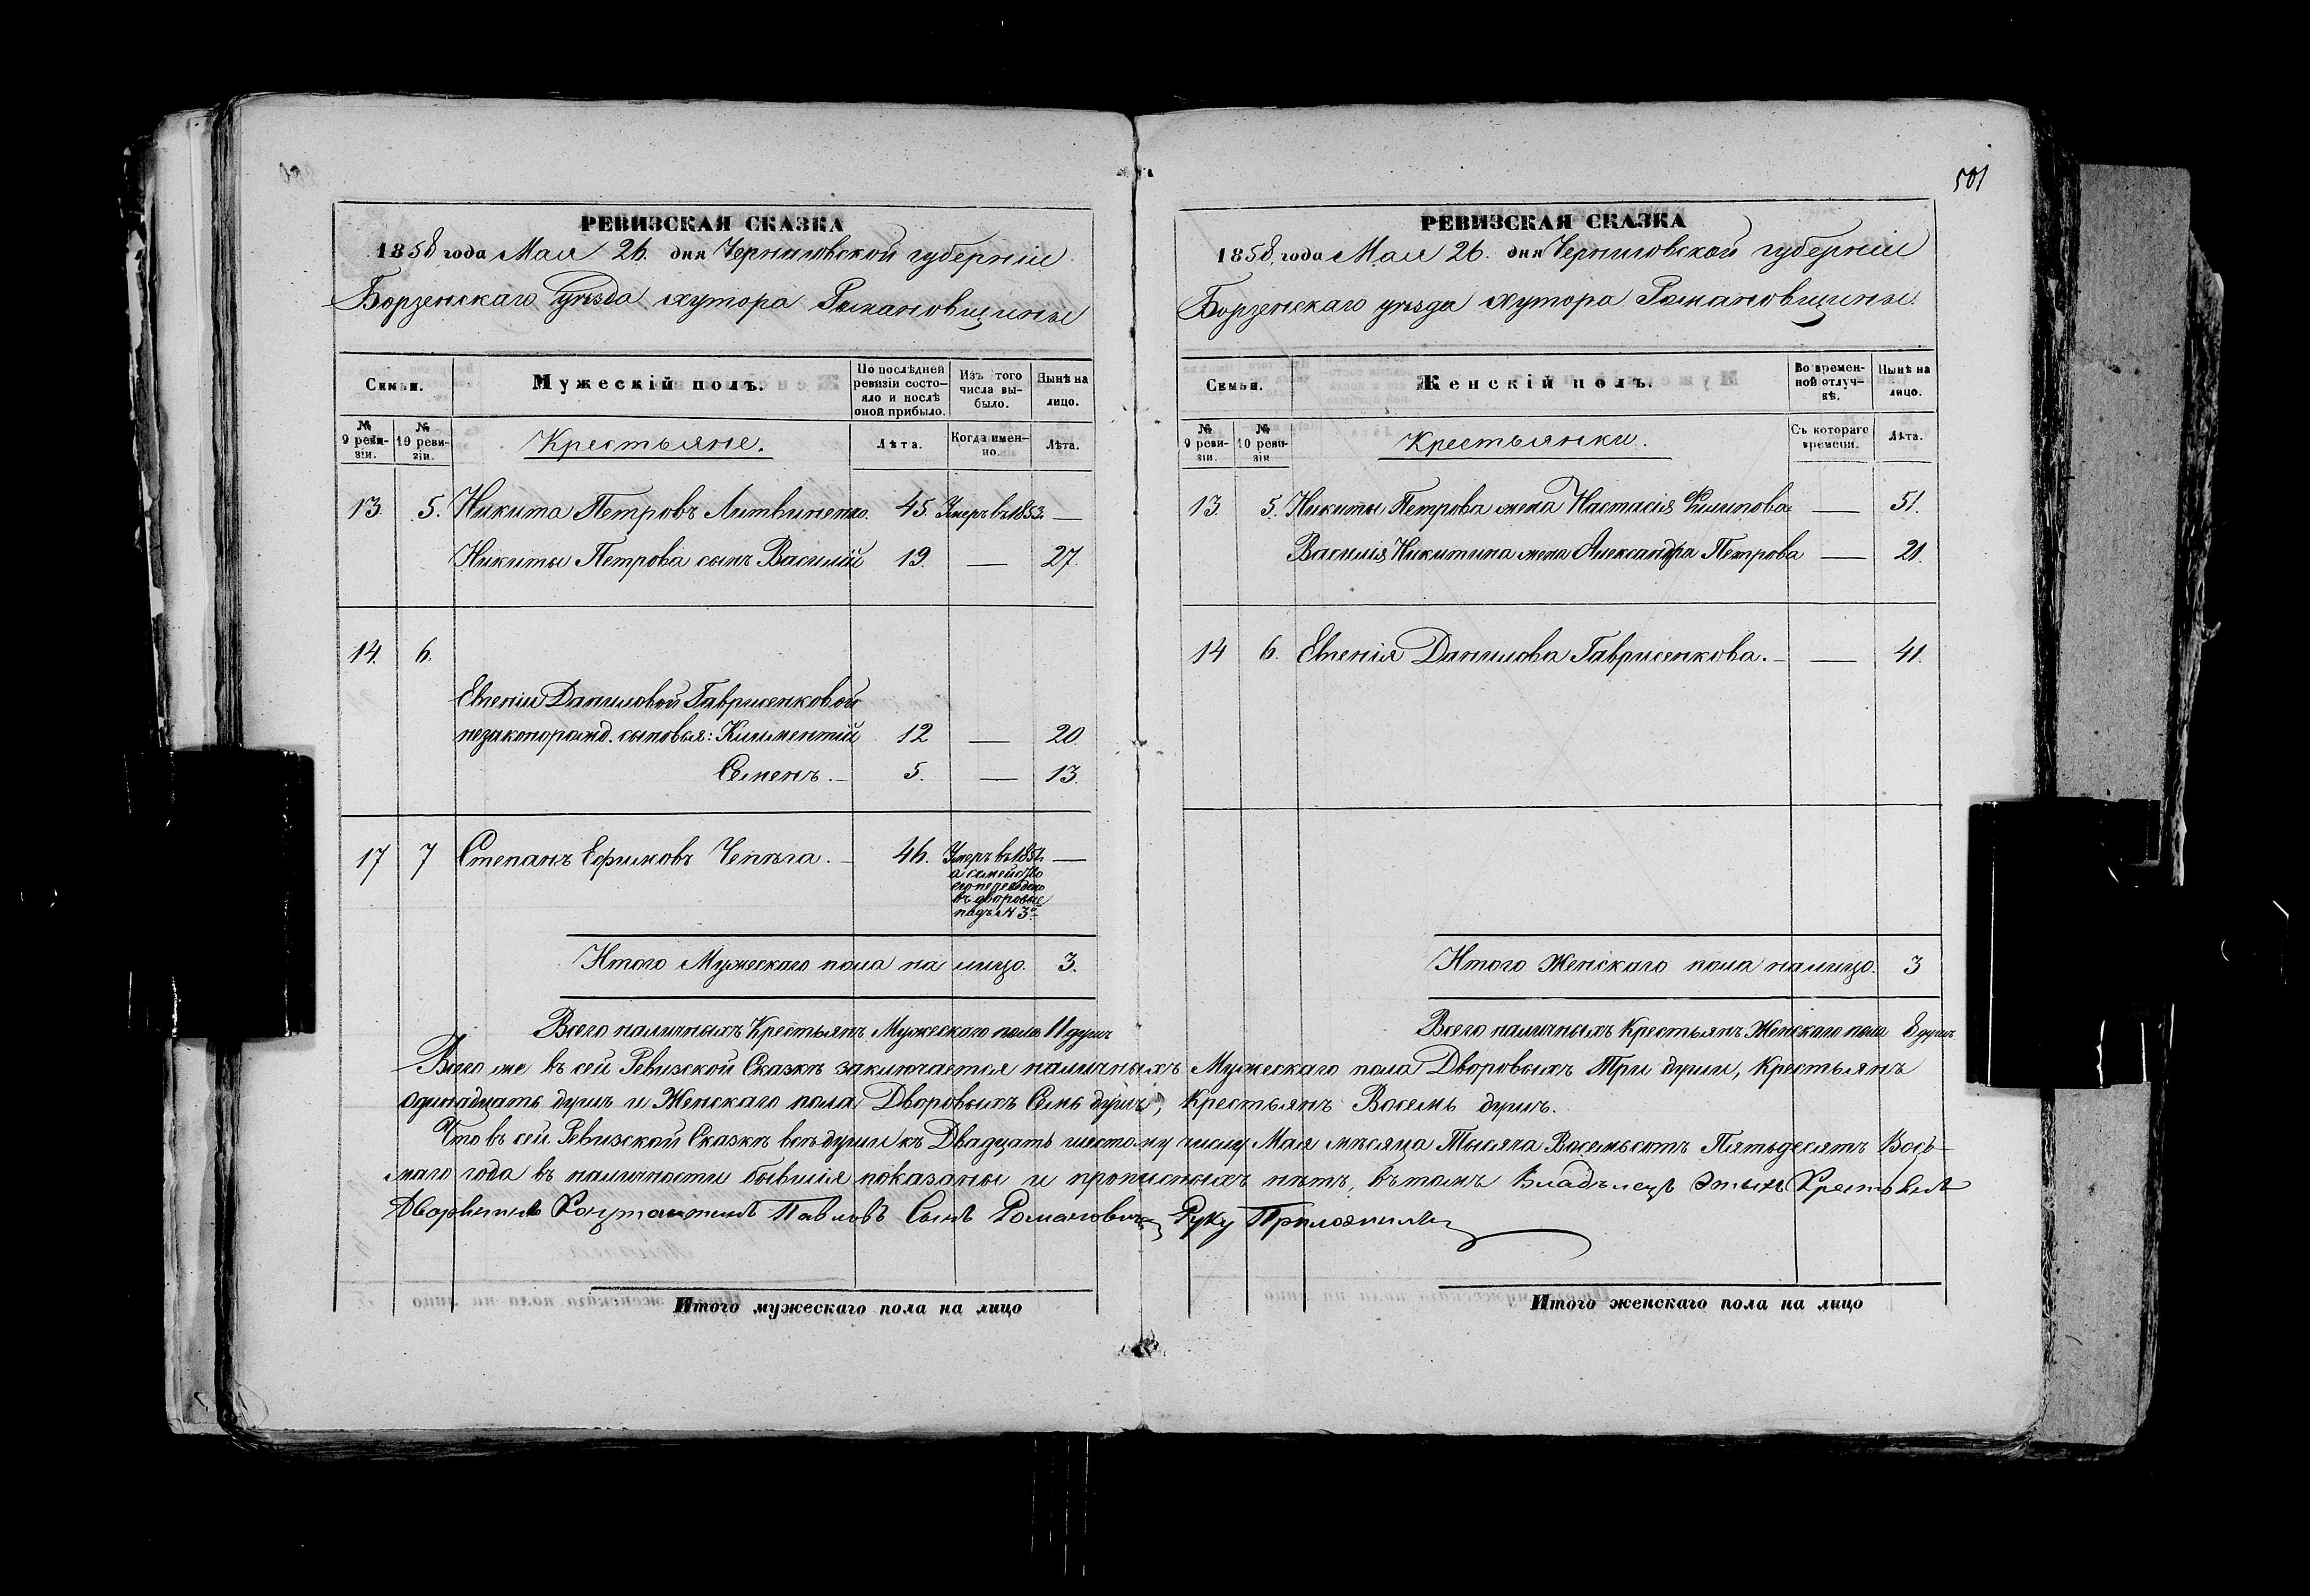 501
РЕВИЗСКАЯ СКАЗКА
1858 года Мая 26. дня Черниговской губерніи
Борзенскаго уѣзда хутора Романовщины
Семьи.
Мужескій полъ.
По послѣдней ревизіи состо-
яло и послѣ
оной прибыло.
Изъ того
числа вы-
было.
Нынѣ на
лицо.
№
9 реви-
зіи.
№
10 реви-
зіи.
Крестьяне.
Лѣта.
Когда имен-
но.
Лѣта.
13. 5. Никита Петровъ Литвиненко. 45. Умеръ въ 1853. —
Никиты Петрова сынъ Василій 19. — 27.
14. 6.
Евгеніи Даниловой Гаврисенковой
незаконорожд. сыновья: Климентій 12 — 20.
Семенъ. — 5. — 13.
17 7 Степанъ Ефимовъ Чепѣга. — 46. Умеръ въ —
а семейство
его переведено
въ дворовые
подъ № 3й
Итого Мужескаго пола на лицо. 3.
Всего наличныхъ Крестьянъ Мужескаго пола 11 душъ
РЕВИЗСКАЯ СКАЗКА
1858 года Мая 26. дня Черниговской губерніи
Борзенскаго уѣзда хутора Романовщины.
Семьи.
Женскій полъ.
Во времен-
ной отлуч-
кѣ.
Нынѣ на
лицо.
№
9 реви-
зіи.
№
10 реви-
зіи
Крестьянки.
Съ котораго
времени.
Лѣта.
13. 5. Никиты Петрова жена Настасія Филипова — 51.
Василія Никитина жена Александра Петрова — 21.
14 6. Евгенія Данилова Гаврисенкова. — — 41.
Итого Женскаго пола налицо. 3
Всего наличныхъ Крестьянъ Женскаго пола 8 душъ
Всего же въ сей Ревизской Сказкѣ заключается наличныхъ Мужескаго пола Дворовыхъ Три души, Крестьянъ
одинадцать душъ и Женскаго пола Дворовыхъ Семь душъ, Крестьянъ Восемь душъ.
Что въ сей Ревизской Сказкѣ всѣ души къ Двадцать шестому числу Мая мѣсяца Тысяча Восемьсотъ Пятьдесятъ Вось-
маго года въ наличности бывшія показаны и прописныхъ нѣтъ, въ томъ Владѣлецъ этыхъ Крестьянъ
Дворянинъ Константинъ Павловъ Сынъ Романовичъ Руку Приложилъ
Итого мужескаго пола на лицо
Итого женскаго пола на лицо